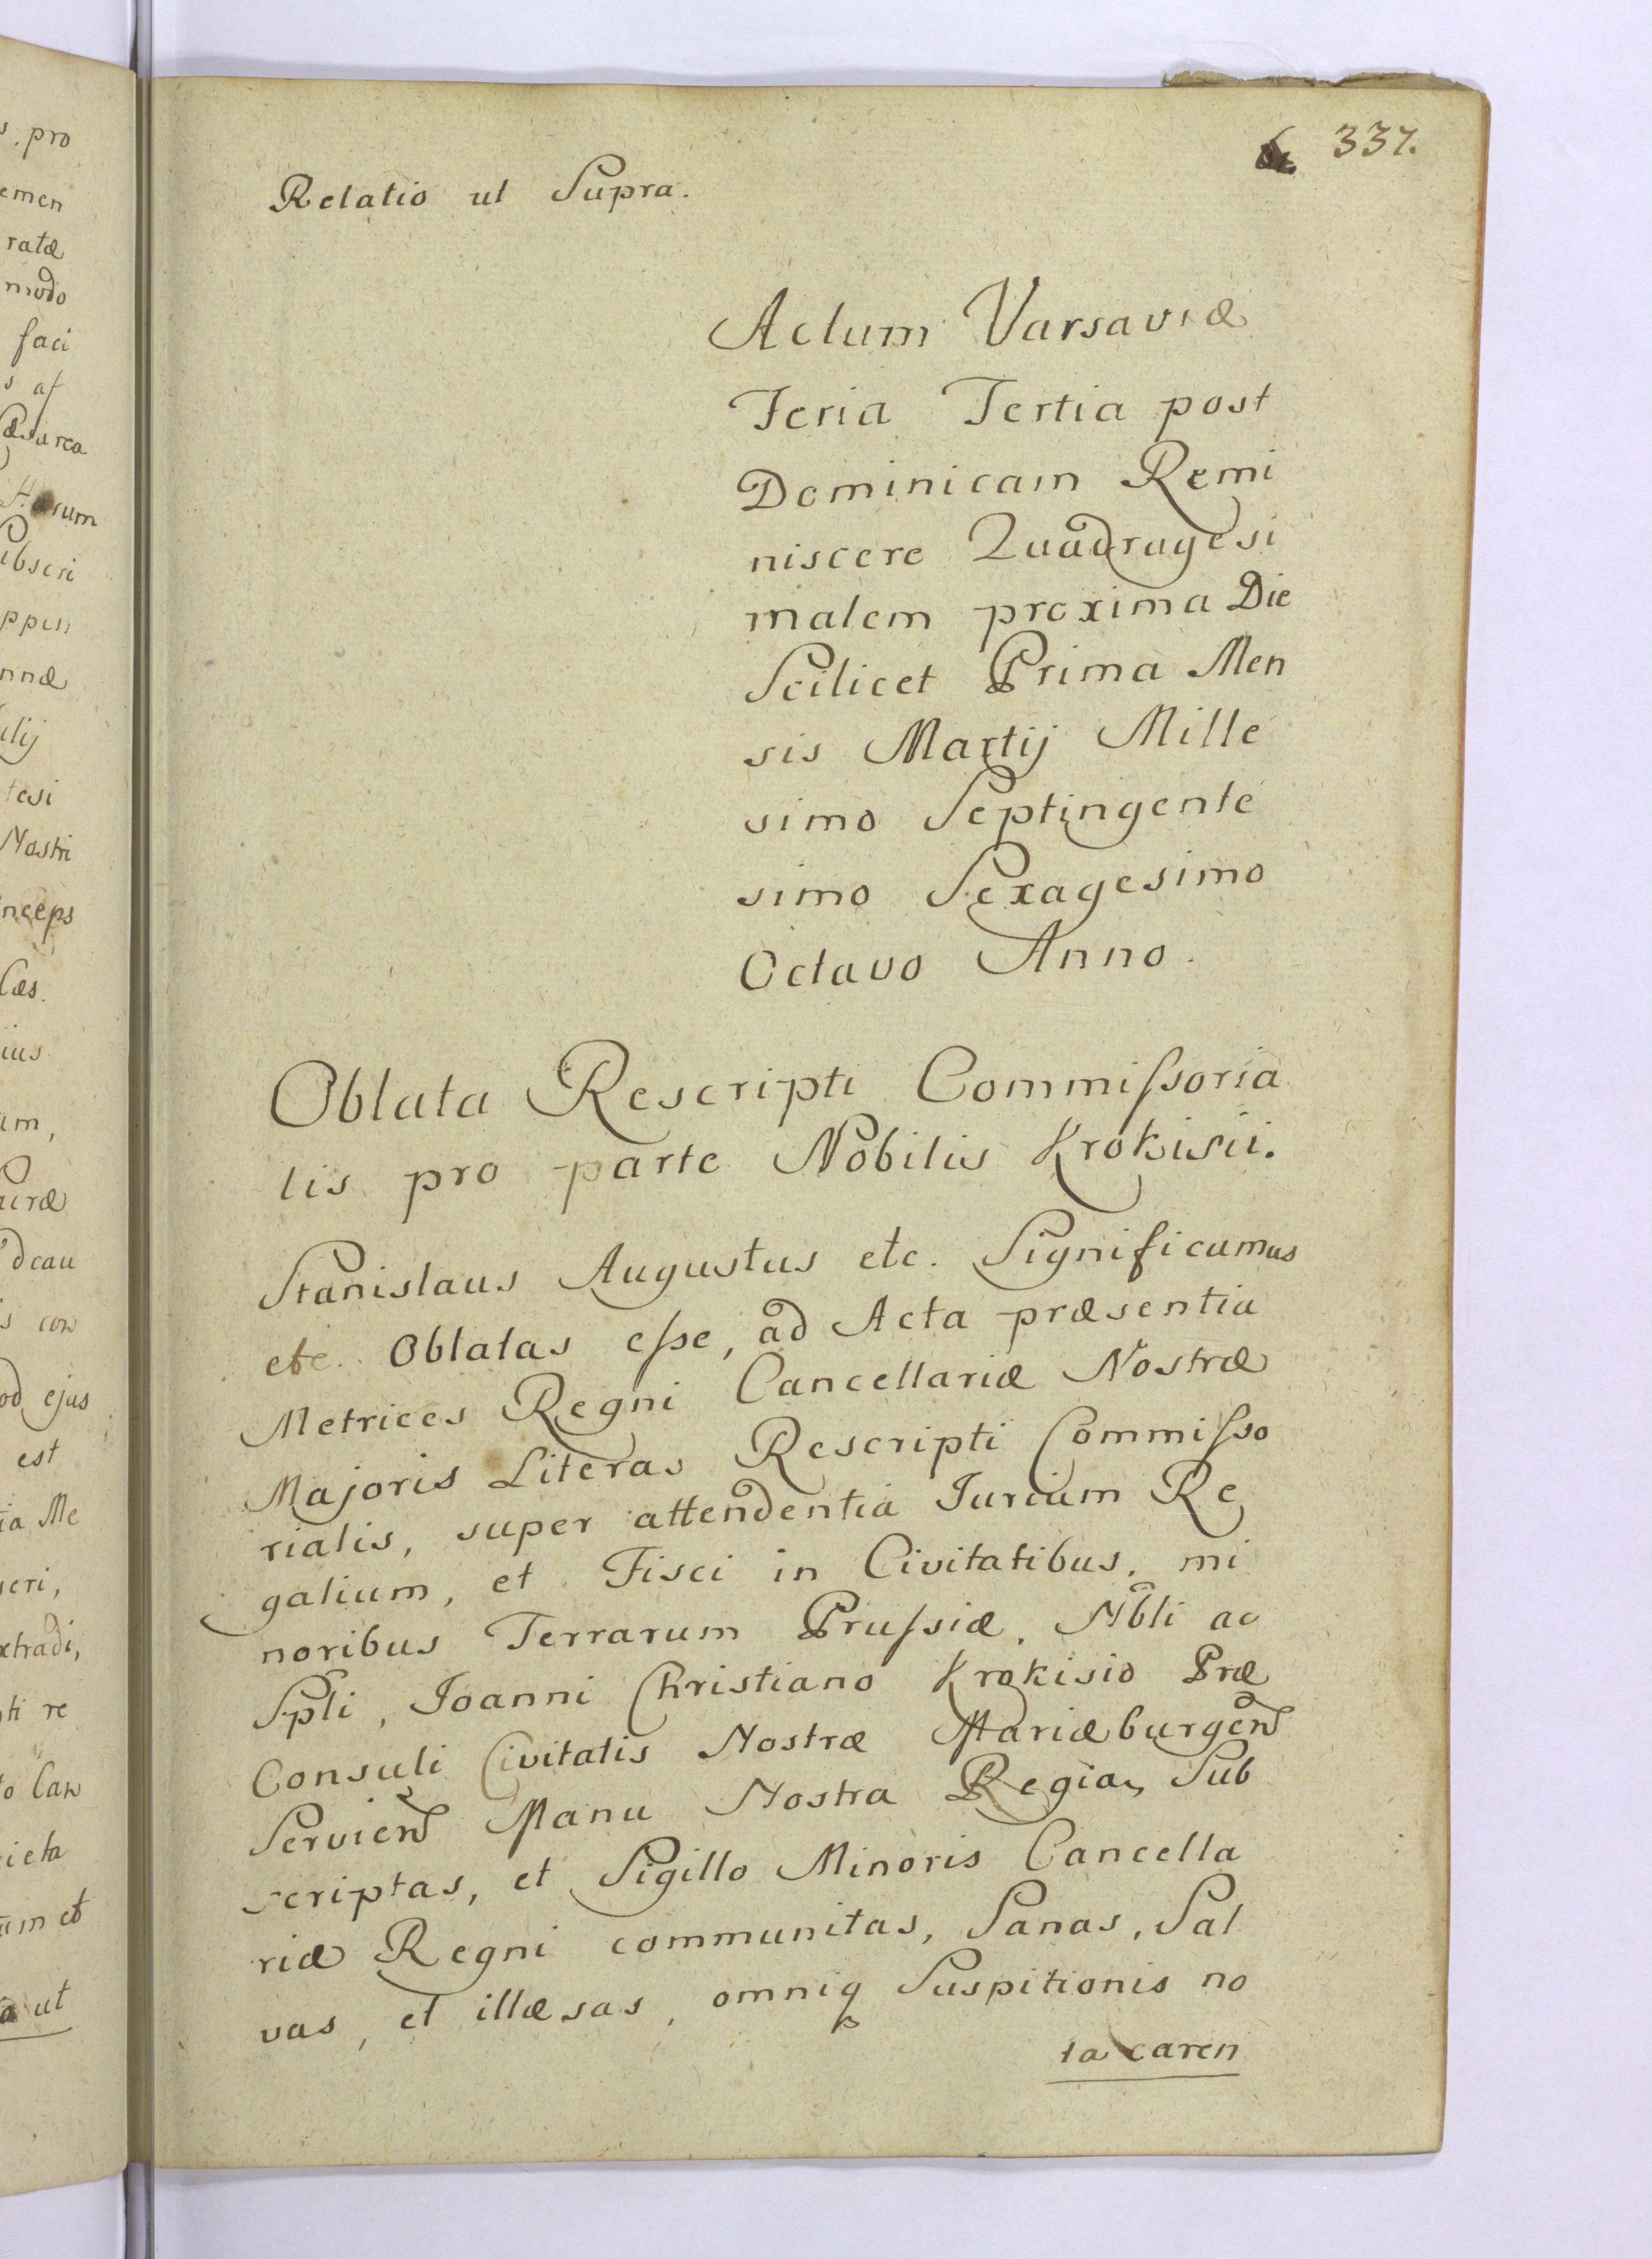 337.
Relatio ut Supra.
Actum Varsaviæ
Feria Tertia post
Dominicam Remi
niscere Quadragesi
malem proxima Die
Scilicet Prima Men
sis Martij Mille
simo Septingente
simo Sexagesimo
Octavo Anno.
Oblata Rescripti Commiſsoria
lis pro parte Nobilis Krokisii.
Stanislaus Augustus etc. Significamus
etc. Oblatas eſse, ad Acta præsentia
Metrices Regni Cancellariæ Nostræ
Majoris Literas Rescripti Commiſso
rialis, super attendentia Jurium Re
galium, et Fisci in Civitatibus, mi
noribus Terrarum Pruſsiæ, Nbli ac
Spli, Joanni Christiano Krokisio Præ
Consuli Civitatis Nostræ Mariæburgen
Servien Manu Nostra Regia, Sub
scriptas, et Sigillo Minoris Cancella
riæ Regni communitas, Sanas, Sal
vas, et illæsas, omniq Suspitionis no
ta caren
pro
emen
ratæ
modo
faci
s af
rum
ibscri
nnæ
ulij
tesi
Nostri
nceps
Cæs.
ius
um,
dcau
s con
od ejus
est
ia Me
seri,
xtradi,
ti re
o Can
ieta
um et
a ut